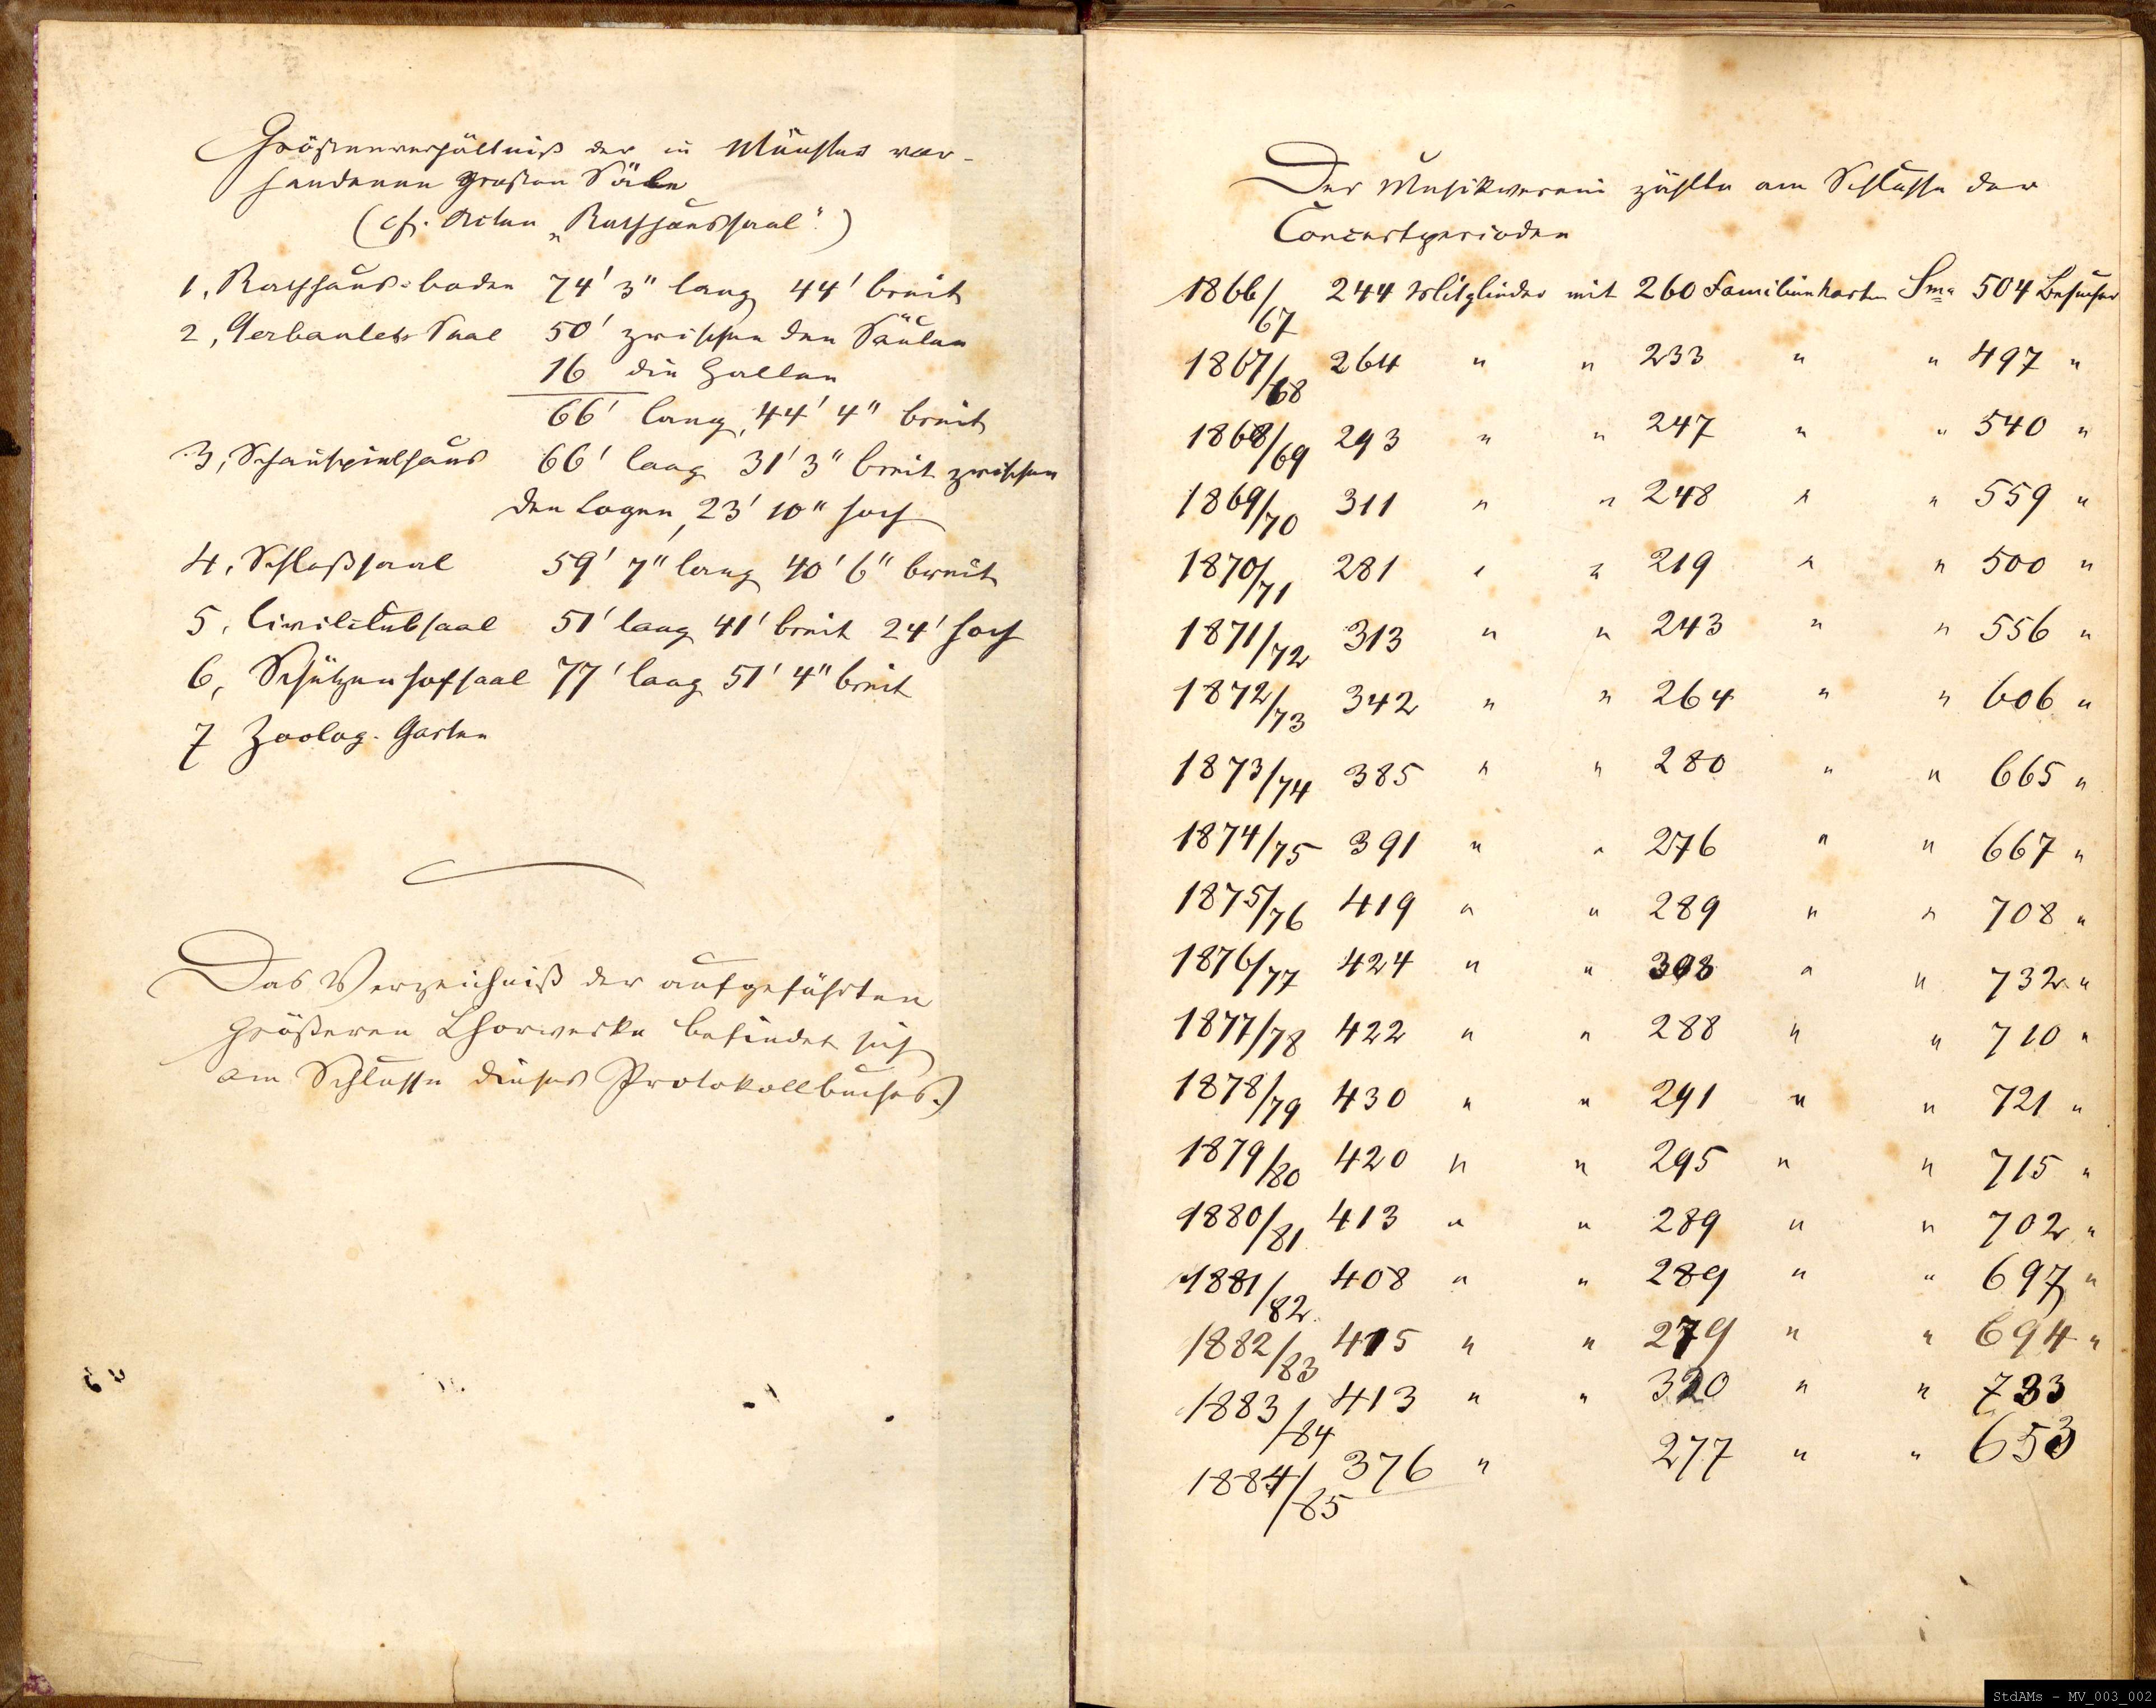 Größenverhältniß der in Münster vor-
handenen großen Säle
(cf. Acten „Rathhaussaal“)
1, Rathhaus-boden 74' 3" lang 44' breit
2, Gerbaulets Saal 50' zwischen den Säulen
16 die Hallen
66' lang, 44' 4" breit
3, Schauspielhaus 66' lang 31' 3" breit zwischen
den Logen, 23' 10" hoch
4, Schloßsaal 59' 7" lang 40' 6" breit
5, Civilclubsaal 51' lang 41' breit 24' hoch
6, Schützenhofsaal 77' lang 51' 4" breit
7 Zoolog. Garten
Das Verzeichniß der aufgeführten
größeren Chorwerke befindet sich
am Schlusse dieses Protokollbuches.
Der Musikverein zählte am Schlusse der
Concertperioden
1866/67 244 Mitglieder mit 260 Familienkarten Sma 504 Besucher
1867/68 264 " " 233 " " 497 "
1868/69 293 " " 247 " " 540 "
1869/70 311 " " 248 " " 559 "
1870/71 281 " " 219 " " 500 "
1871/72 313 " " 243 " " 556 "
1872/73 342 " " 264 " " 606 "
1873/74 385 " " 280 " " 665 "
1874/75 391 " " 276 " " 667 "
1875/76 419 " " 289 " " 708 "
1876/77 424 " " 308 " " 732 "
1877/78 422 " " 288 " " 710 "
1878/79 430 " " 291 " " 721 "
1879/80 420 " " 295 " " 715 "
1880/81 413 " " 289 " " 702 "
1881/82 408 " " 289 " " 697 "
1882/83 415 " " 279 " " 694 "
1883/84 413 " " 320 " " 733
1884/85 376 " 277 " " 653
StdAMs - MV_003_002